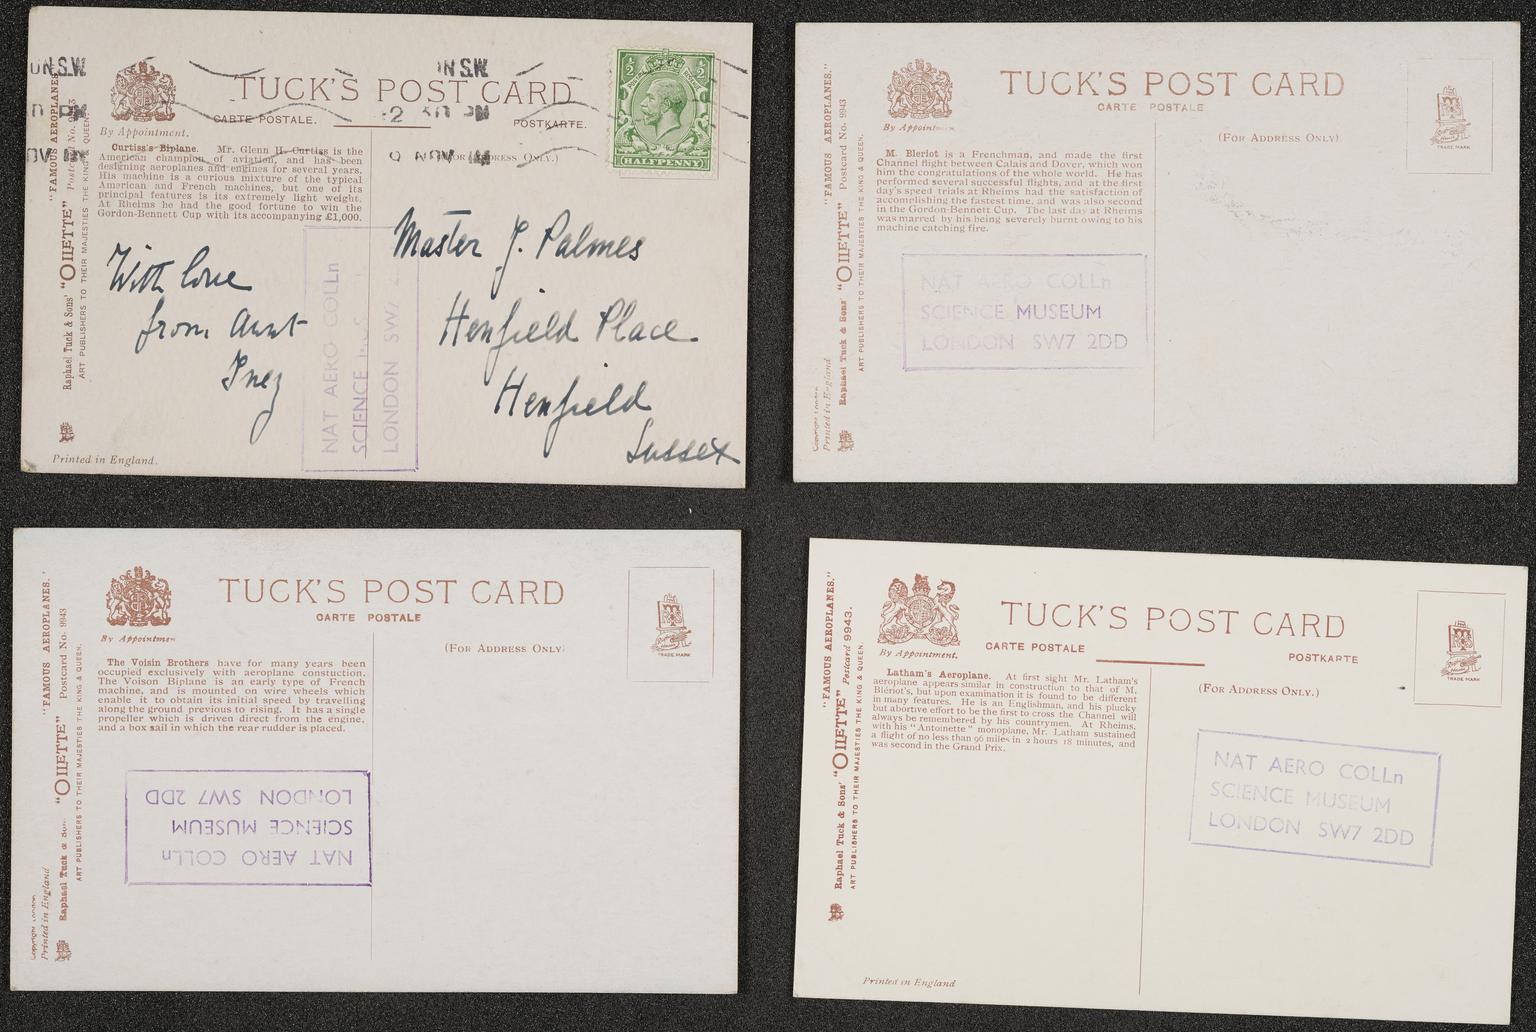 N.S.W.
N S.W.
12 30 PM
9 NOV
TUCK'S POST CARD
CARTE POSTALE.
POSTKARTE.
By Appointment.
(FOR ADDRESS ONLY.)
HALFPENNY
Curtiss's Biplane. Mr. Glenn H. Curtiss is the
American champion of aviation, and has been
designing aeroplanes and engines for several years.
His machine is a curious mixture of the typical
American and French machines, but one of its
principal features is its extremely light weight.
At Rheims he had the good fortune to win the
Gordon-Bennett Cup with its accompanying £1,000.
With love
from Aunt
Inez
Master J. Palmes
Henfield Place
Henfield
Sussex
NAT AERO COLLn
SCIENCE
LONDON SW7
"FAMOUS AEROPLANES."
Raphael Tuck & Sons' "OILETTE" Postcard No. 9943
ART PUBLISHERS TO THEIR MAJESTIES THE KING & QUEEN.
Printed in England.
TUCK'S POST CARD
CARTE POSTALE.
By Appointmen
(FOR ADDRESS ONLY)
TRADE MARK
M. Bleriot is a Frenchman, and made the first
Channel flight between Calais and Dover, which won
him the congratulations of the whole world. He has
performed several successful flights, and at the first
day's speed trials at Rheims had the satisfaction of
accomplishing the fastest time, and was also second
in the Gordon-Bennett Cup. The last day at Rheims
was marred by his being severely burnt owing to his
machine catching fire.
NAT AERO COLLn
SCIENCE MUSEUM
LONDON SW7 2DD
"FAMOUS AEROPLANES."
Raphael Tuck & Sons' "OILETTE" Postcard No. 9943
ART PUBLISHERS TO THEIR MAJESTIES THE KING & QUEEN.
Copyright London
Printed in England
TUCK'S POST CARD
CARTE POSTALE
By Appointmen
(FOR ADDRESS ONLY)
TRADE MARK
The Voisin Brothers have for many years been
occupied exclusively with aeroplane constuction.
The Voison Biplane is an early type of French
machine, and is mounted on wire wheels which
enable it to obtain its initial speed by travelling
along the ground previous to rising. It has a single
propeller which is driven direct from the engine,
and a box sail in which the rear rudder is placed.
NAT AERO COLLn
SCIENCE MUSEUM
LONDON SW7 2DD
"FAMOUS AEROPLANES."
Raphael Tuck & Sons "OILETTE" Postcard No. 9943
ART PUBLISHERS TO THEIR MAJESTIES THE KING & QUEEN.
Copyright London
Printed in England
TUCK'S POST CARD
CARTE POSTALE
POSTKARTE
By Appointment.
(FOR ADDRESS ONLY.)
TRADE MARK
Latham's Aeroplane. At first sight Mr. Latham's
aeroplane appears similar in construction to that of M.
Blériot's, but upon examination it is found to be different
in many features. He is an Englishman, and his plucky
but abortive effort to be the first to cross the Channel will
always be remembered by his countrymen. At Rheims,
with his "Antoinette" monoplane, Mr. Latham sustained
a flight of no less than 96 miles in 2 hours 18 minutes, and
was second in the Grand Prix.
NAT AERO COLLn
SCIENCE MUSEUM
LONDON SW7 2DD
"FAMOUS AEROPLANES."
Raphael Tuck & Sons' "OILETTE" Postcard 9943.
ART PUBLISHERS TO THEIR MAJESTIES THE KING & QUEEN.
Printed in England